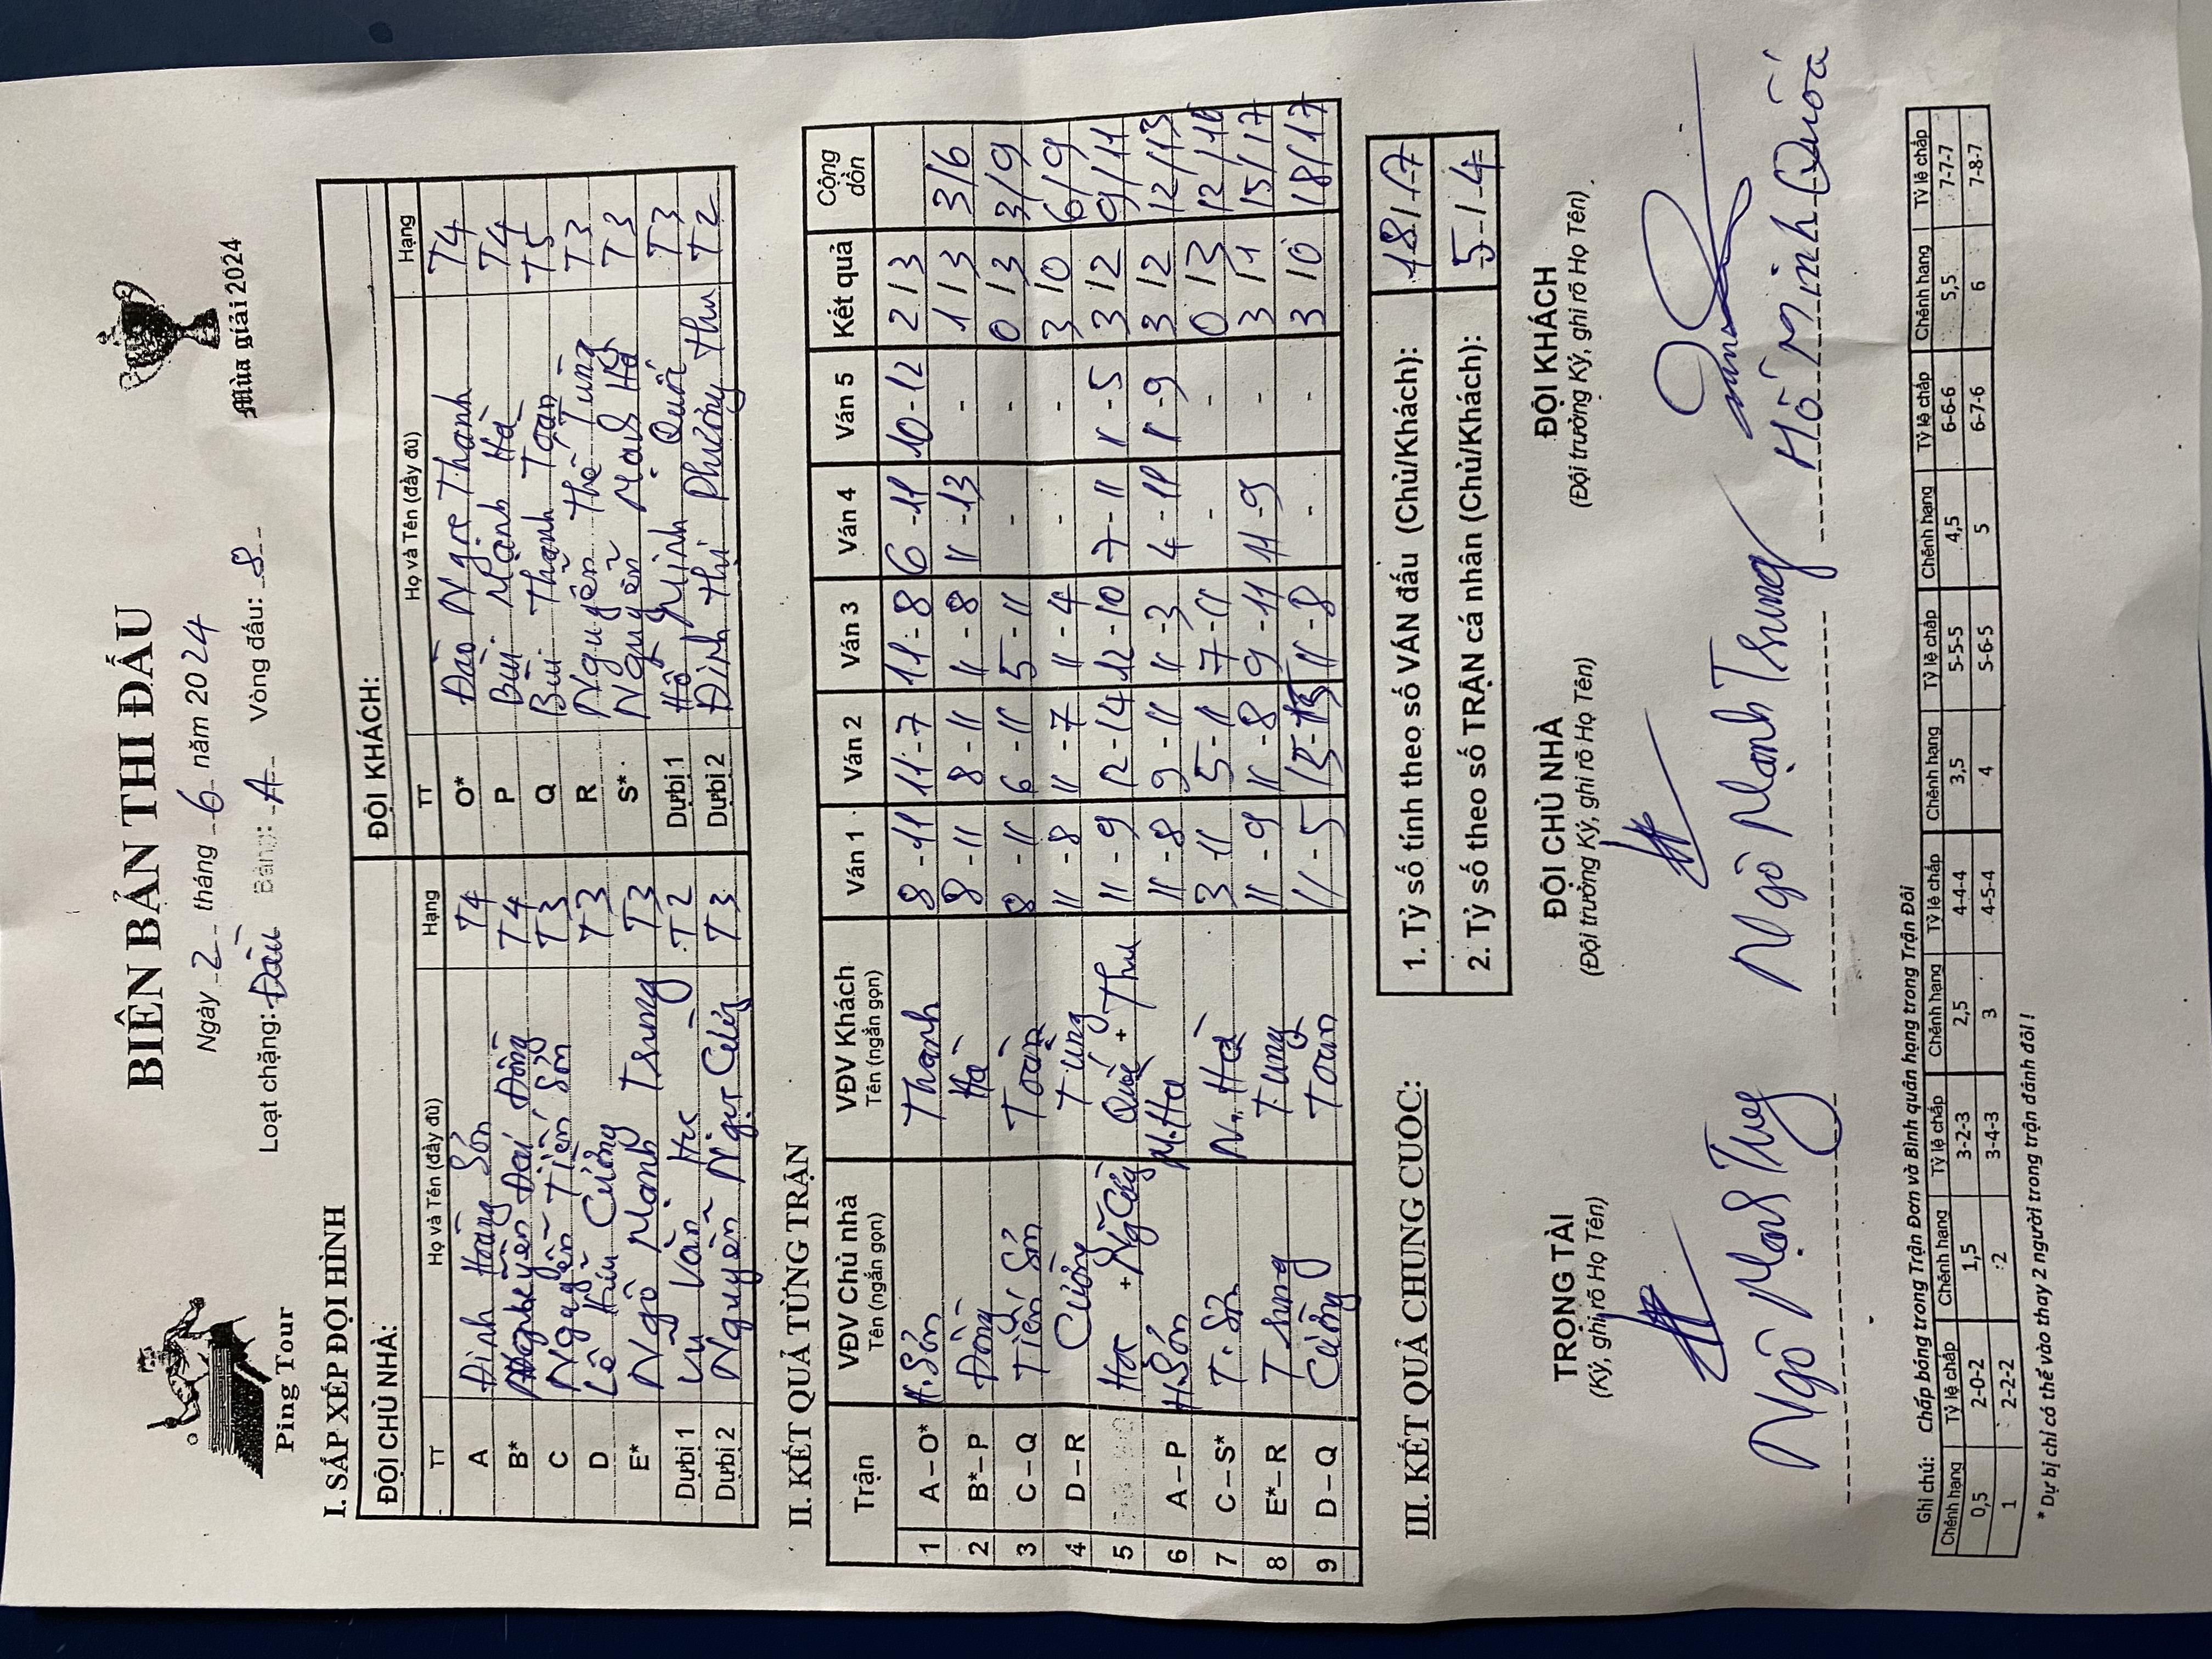 Ping Tour
BIÊN BẢN THI ĐẤU
Mùa giải 2024
Ngày 2 tháng 6 năm 2024
Loạt chặng: Đầu Bảng: A Vòng đấu: 8
I. SẮP XẾP ĐỘI HÌNH
ĐỘI CHỦ NHÀ: ĐỘI KHÁCH:
TT Họ và Tên (đầy đủ) Hạng TT Họ và Tên (đầy đủ) Hạng
A Đinh Hoàng Sơn T4 O* Đào Ngọc Thanh T4
B* Nguyễn Đại Đồng T4 P Bùi Mạnh Hà T4
C Nguyễn Tiến Sơn T3 Q Bùi Thanh Toàn T5
D Lê Hữu Cường T3 R Nguyễn Thế Tùng T3
E* Ngô Mạnh Trung T3 S* Nguyễn Mạnh Hà T3
Dự bị 1 Vũ Văn T2 Dự bị 1 Hồ Minh Quốc T3
Dự bị 2 Nguyễn Ngọc T3 Dự bị 2 Đinh thị Phương Thu T2
II. KẾT QUẢ TỪNG TRẬN
Trận VĐV Chủ nhà Tên (ngắn gọn) VĐV Khách Tên (ngắn gọn) Ván 1 Ván 2 Ván 3 Ván 4 Ván 5 Kết quả Cộng dồn
1 A – O* H.Sơn Thanh 8-11 11-7 11-8 6-11 10-12 2/3
2 B* – P Đồng Hà 8-11 8-11 11-8 11-13 - 1/3 3/6
3 C – Q Tiến Sơn Toàn 8-11 6-11 5-11 - - 0/3 3/9
4 D – R Cường Tùng 11-8 11-7 11-4 - - 3/0 6/9
5 + Quốc + Thu 11-9 12-14 12-10 7-11 11-5 3/2 9/11
6 A – P H.Sơn M.Hà 11-8 9-11 11-3 4-11 11-9 3/2 12/13
7 C – S* T.Sơn N.Hà 3-11 5-11 7-11 - - 0/3 12/16
8 E* – R Trung Tùng 11-9 11-8 9-11 11-9 3/1 15/17
9 D – Q Cường Toàn 11-5 15-13 11-8 - - 3/0 18/17
III. KẾT QUẢ CHUNG CUỘC:
1. Tỷ số tính theo số VÁN đấu (Chủ/Khách): 18/17
2. Tỷ số theo số TRẬN cá nhân (Chủ/Khách): 5/4
TRỌNG TÀI ĐỘI CHỦ NHÀ ĐỘI KHÁCH
(Ký, ghi rõ Họ Tên) (Đội trưởng Ký, ghi rõ Họ Tên) (Đội trưởng Ký, ghi rõ Họ Tên)
Ngô Mạnh Trung Ngô Mạnh Trung Hồ Minh Quốc
Ghi chú: Chấp bóng trong Trận Đơn và Bình quân hạng trong Trận Đôi
Chênh hạng Tỷ lệ chấp Chênh hạng Tỷ lệ chấp Chênh hạng Tỷ lệ chấp Chênh hạng Tỷ lệ chấp Chênh hạng Tỷ lệ chấp Chênh hạng Tỷ lệ chấp
0,5 2-0-2 1,5 3-2-3 2,5 4-4-4 3,5 5-5-5 4,5 6-6-6 5,5 7-7-7
1 2-2-2 2 3-4-3 3 4-5-4 4 5-6-5 5 6-7-6 6 7-8-7
* Dự bị chỉ có thể vào thay 2 người trong trận đánh đôi !